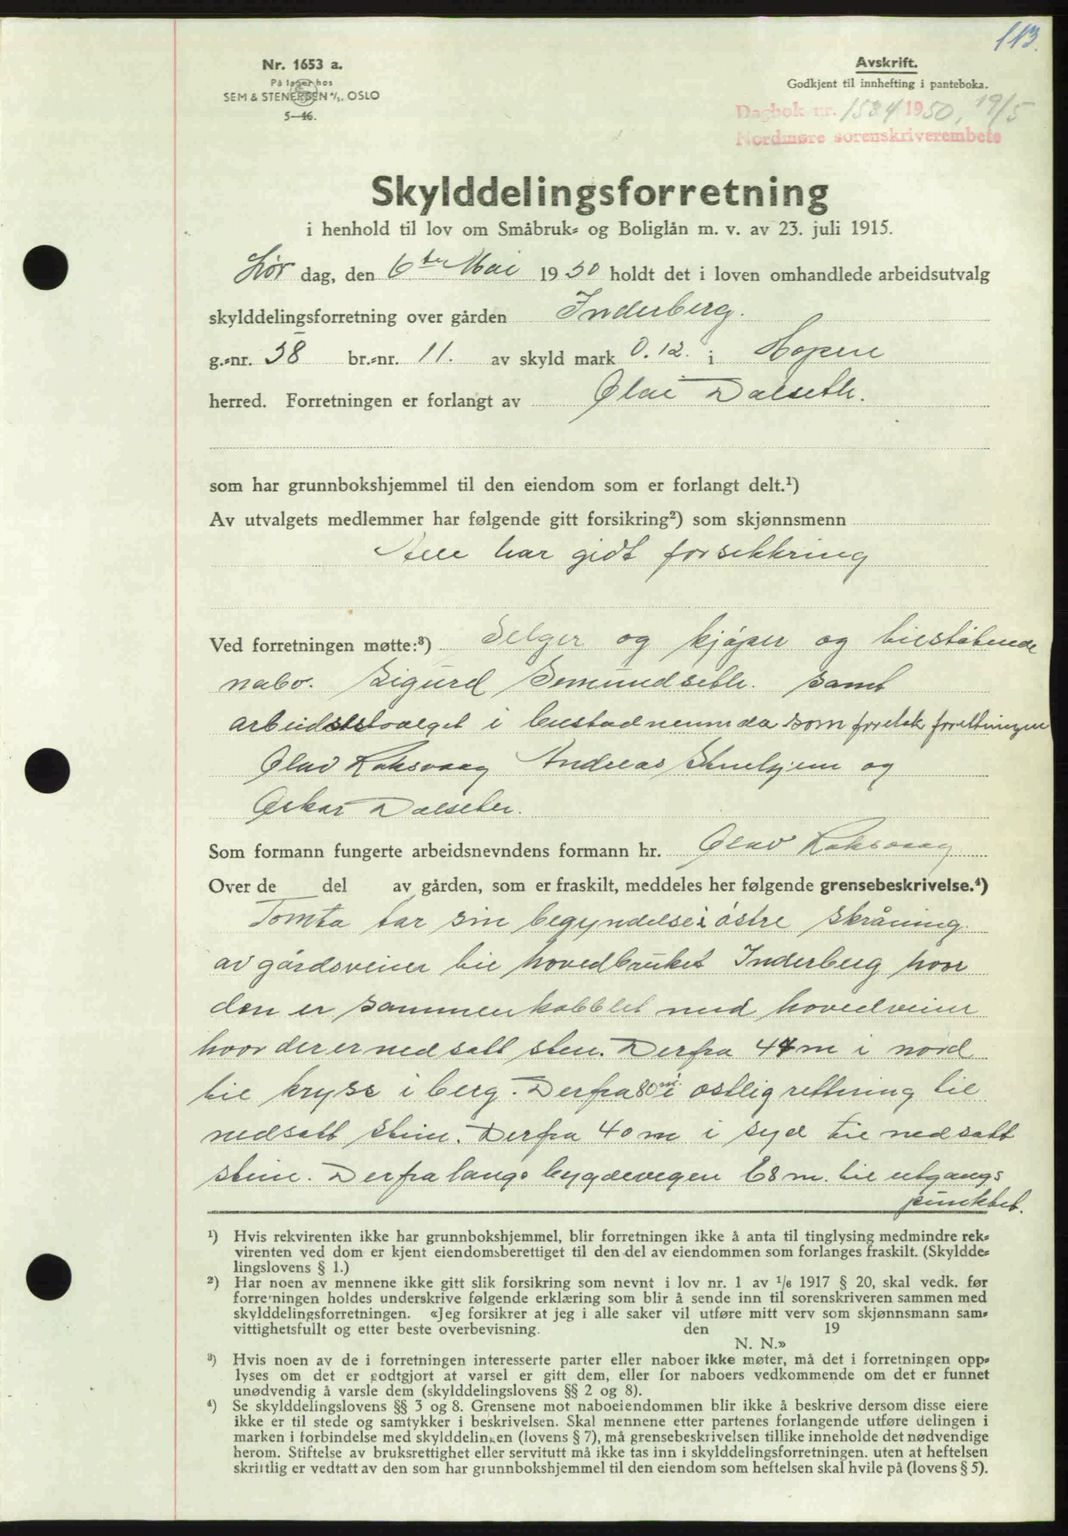 113.
Nr. 1653 a.
På lager hos
SEM & STENERSEN A/S. OSLO
5—46.
Avskrift.
Godkjent til innhefting i panteboka.
Dagbok nr. 1534 1950, 19/5
Nordmøre sorenskriverembete
Skylddelingsforretning
i henhold til lov om Småbruk- og Boliglån m. v. av 23. juli 1915.
Lør dag, den 6te Mai 1950 holdt det i loven omhandlede arbeidsutvalg
skylddelingsforretning over gården Inderberg.
g.-nr. 38 br.-nr. 11. av skyld mark 0.12. i Hopen
herred. Forretningen er forlangt av Olai Dalseth.
som har grunnbokshjemmel til den eiendom som er forlangt delt.¹)
Av utvalgets medlemmer har følgende gitt forsikring²) som skjønnsmenn
Alle har gidt forsikkring
Ved forretningen møtte:³) Selger og kjøper og tilstøtende
nabo. Sigurd Semundseth. samt
arbeidsutvalget i bustadnemnda som foretok forretningen
Olav Roksvaag Andreas Stuehjem og
Oskar Dalseter.
Som formann fungerte arbeidsnevndens formann hr. Olav Roksvaag
Over de del av gården, som er fraskilt, meddeles her følgende grensebeskrivelse.⁴)
Tomta tar sin begyndelse i østre skråning
av gårdsveien til hovedbruket Inderberg hvor
den er sammenkobblet med hovedveien
hvor der er nedsatt sten. Derfra 44 m i nord
til kryss i berg. Derfra 80 m i ostlig rettning til
nedsatt stein. Derfra 40 m i syd til nedsatt
stein. Derfra langs bygdevegen 68 m. til utgangs
punktet.
¹) Hvis rekvirenten ikke har grunnbokshjemmel, blir forretningen ikke å anta til tinglysing medmindre rek-
virenten ved dom er kjent eiendomsberettiget til den del av eiendommen som forlanges fraskilt. (Skyldde-
lingslovens § 1.)
²) Har noen av mennene ikke gitt slik forsikring som nevnt i lov nr. 1 av 1/6 1917 § 20, skal vedk. før
forretningen holdes underskrive følgende erklæring som blir å sende inn til sorenskriveren sammen med
skylddelingsforretningen. «Jeg forsikrer at jeg i alle saker vil utføre mitt verv som skjønnsmann sam-
vittighetsfullt og etter beste overbevisning. den 19
N. N.»
³) Hvis noen av de i forretningen interesserte parter eller naboer ikke møter, må det i forretningen opp-
lyses om det er godtgjort at varsel er gitt dem, eller for naboers vedkommende om det er funnet
unødvendig å varsle dem (skylddelingslovens §§ 2 og 8).
⁴) Se skylddelingslovens §§ 3 og 8. Grensene mot naboeiendommen blir ikke å beskrive dersom disse eiere
ikke er til stede og samtykker i beskrivelsen. Skal mennene etter partenes forlangende utføre delingen i
marken i forbindelse med skylddelingen (lovens § 7), må grensebeskrivelsen tillike inneholde det nødvendige
herom. Stiftelse av bruksrettighet eller servitutt må ikke tas inn i skylddelingsforretningen. uten at heftelsen
skriftlig er vedtatt av den som har grunnbokshjemmel til den eiendom som heftelsen skal hvile på (lovens § 5).